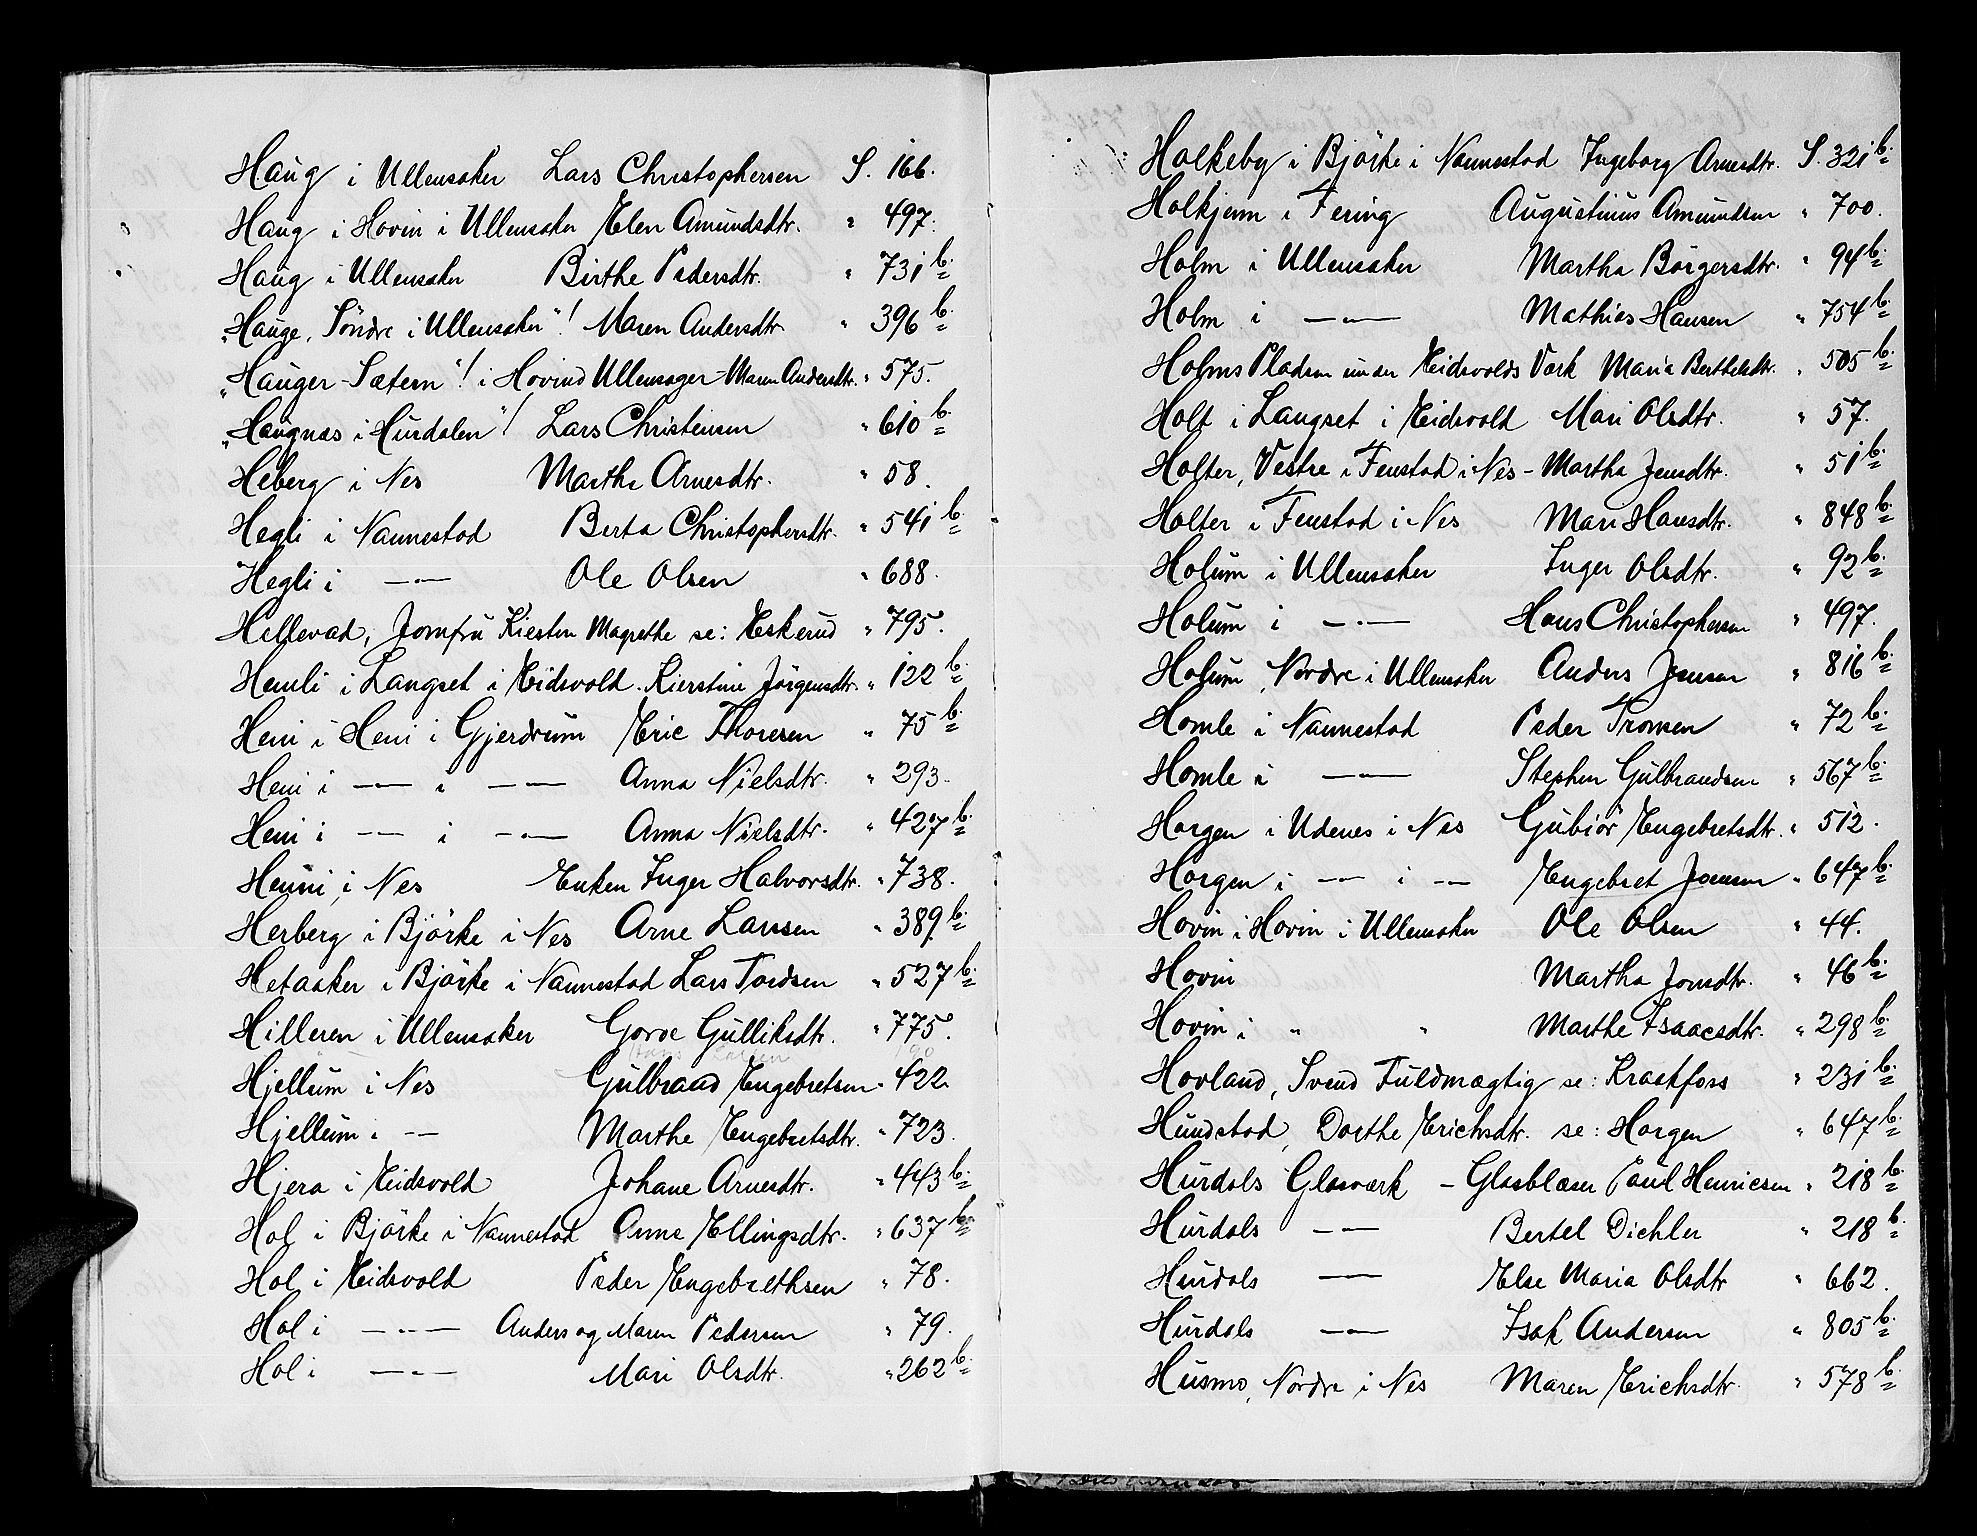 Haug i Ullensaker Lars Christophersen S. 166.
Haug i Hovin i Ullensaker Elen Amundsdtr. " 497.
Haug i Ullensaker Birthe Pedersdtr. " 731 b.
"Hauge, Söndre i Ullensaker"! Maren Andersdtr " 396 b.
"Hauger-Sætern"! i Hovind Ullensager - Maren Andersdtr. " 575.
"Haugnæs i Hurdalen"! Lars Christensen " 610 b.
Heberg i Nes Marthe Arnesdtr. " 58.
Hegli i Nannestad Berta Christophersdtr. " 541 b.
Hegli i —"— Ole Olsen " 688.
Hellevad, Jomfru Kiesten Magrethe se: Eskerud " 795.
Hemli i Langset i Eidsvold. Kierstine Jörgensdtr. " 122 b.
Heni i Heni i Gjerdrum Eric Thoresen " 75 b.
Heni i —"— i —"— Anna Nielsdtr. " 293.
Heni i —"— i —"— Anna Nielsdtr. " 427 b.
Henni i Nes Enken Inger Halvorsdtr. " 738.
Herberg i Björke i Nes Arne Larssen " 389 b.
Hetaaker i Björke i Nannestad Lars Tordsen " 527 b.
Hilleren i Ullensaker Gorve Gulliksdtr. " 775.
Hjellum i Nes Gulbrand Engebretsen " 422
Hjellum i —"— Marthe Engebretsdtr. " 723.
Hjera i Eidsvold Johane Arnesdtr. " 443 b.
Hol i Björke i Nannestad Anne Ellingsdtr. " 637 b.
Hol i Eidsvold Peder Engebrethsen " 78.
Hol i —"— Anders og Maren Pedersen " 79.
Hol i —"— Mari Olsdtr. " 262 b.
Holkeby i Björke i Nannestad Ingeborg Arnesdtr. S. 321 b.
Holkjenn i Fering Augustinus Amundsen " 700.
Holm i Ullensaker Martha Börgersdtr. " 94 b.
Holm i —"— Mathias Hansen " 754 b.
Holms Pladsen under Eidsvolds Værk Maria Berthelsdtr. " 505 b.
Holt i Langset i Eidsvold Mari Olsdtr. " 57.
Holter, Vestre i Fenstad i Nes - Martha Jensdtr. " 51 b.
Holter i Fenstad i Nes Mari Hansdtr. " 848 b.
Holum i Ullensaker Inger Olsdtr. " 92 b.
Holum i —"— Hans Christophersen " 497.
Holum, Nordre i Ullensaker Anders Jensen " 816 b.
Homle i Nannestad Peder Tronsen " 72 b.
Homle i —"— Stephen Gulbrandsen " 567 b.
Horgen i Udenes i Nes Gubiör Engebretsdtr. " 512.
Horgen i —"— i —"— Engebret Jensen " 647 b.
Hovin i Hovin i Ullensaker Ole Olsen " 44.
Hovin Martha Jonsdtr. " 46 b.
Hovin i " " Marthe Isaacsdtr. " 298 b.
Hovland, Svend Fuldmægtig se: Kraakfoss " 231 b.
Hundstad, Dorthe Erichsdtr. se: Horgen " 647 b.
Hurdals Glasværk - Glasblæser Paul Henricsen " 218 b.
Hurdals —"— Bertel Dichler " 218 b.
Hurdals —"— Else Maria Olsdtr " 662.
Hurdals —"— Isak Andersen " 805 b.
Husmo, Nordre i Nes Maren Erichsdtr. " 578 b.